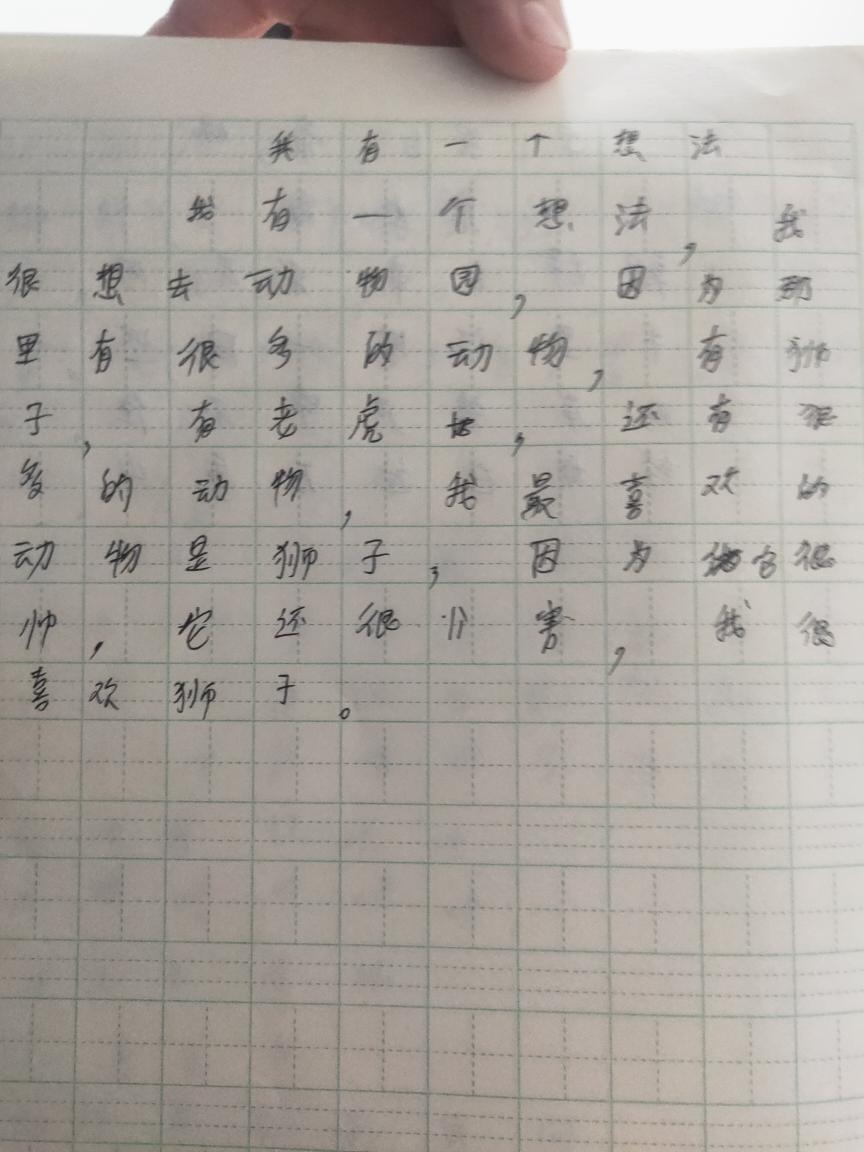 我有一个想法
我有一个想法，我
很想去动物园，因为那
里有很多的动物，有狮
子，有老虎，还有很
多的动物，我最喜欢的
动物是狮子，因为它很
帅，它还很害，我很
喜欢狮子。